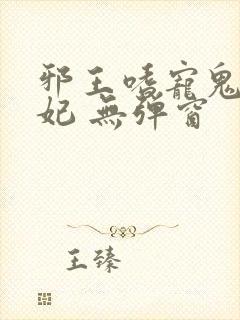 邪王嗜寵鬼
妃 無彈窗
王臻